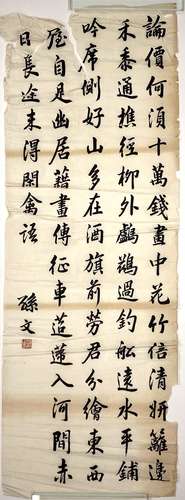 論價何須十萬錢畫中花竹倍清妍籬邊
禾黍通樵徑柳外鸕鶿過釣船遠水平鋪
吟席側好山多在酒旗前勞君分繪東西
屋自是幽居藉畫傳征車莅蓮入河間赤
日長途未得閑禽語
孫文